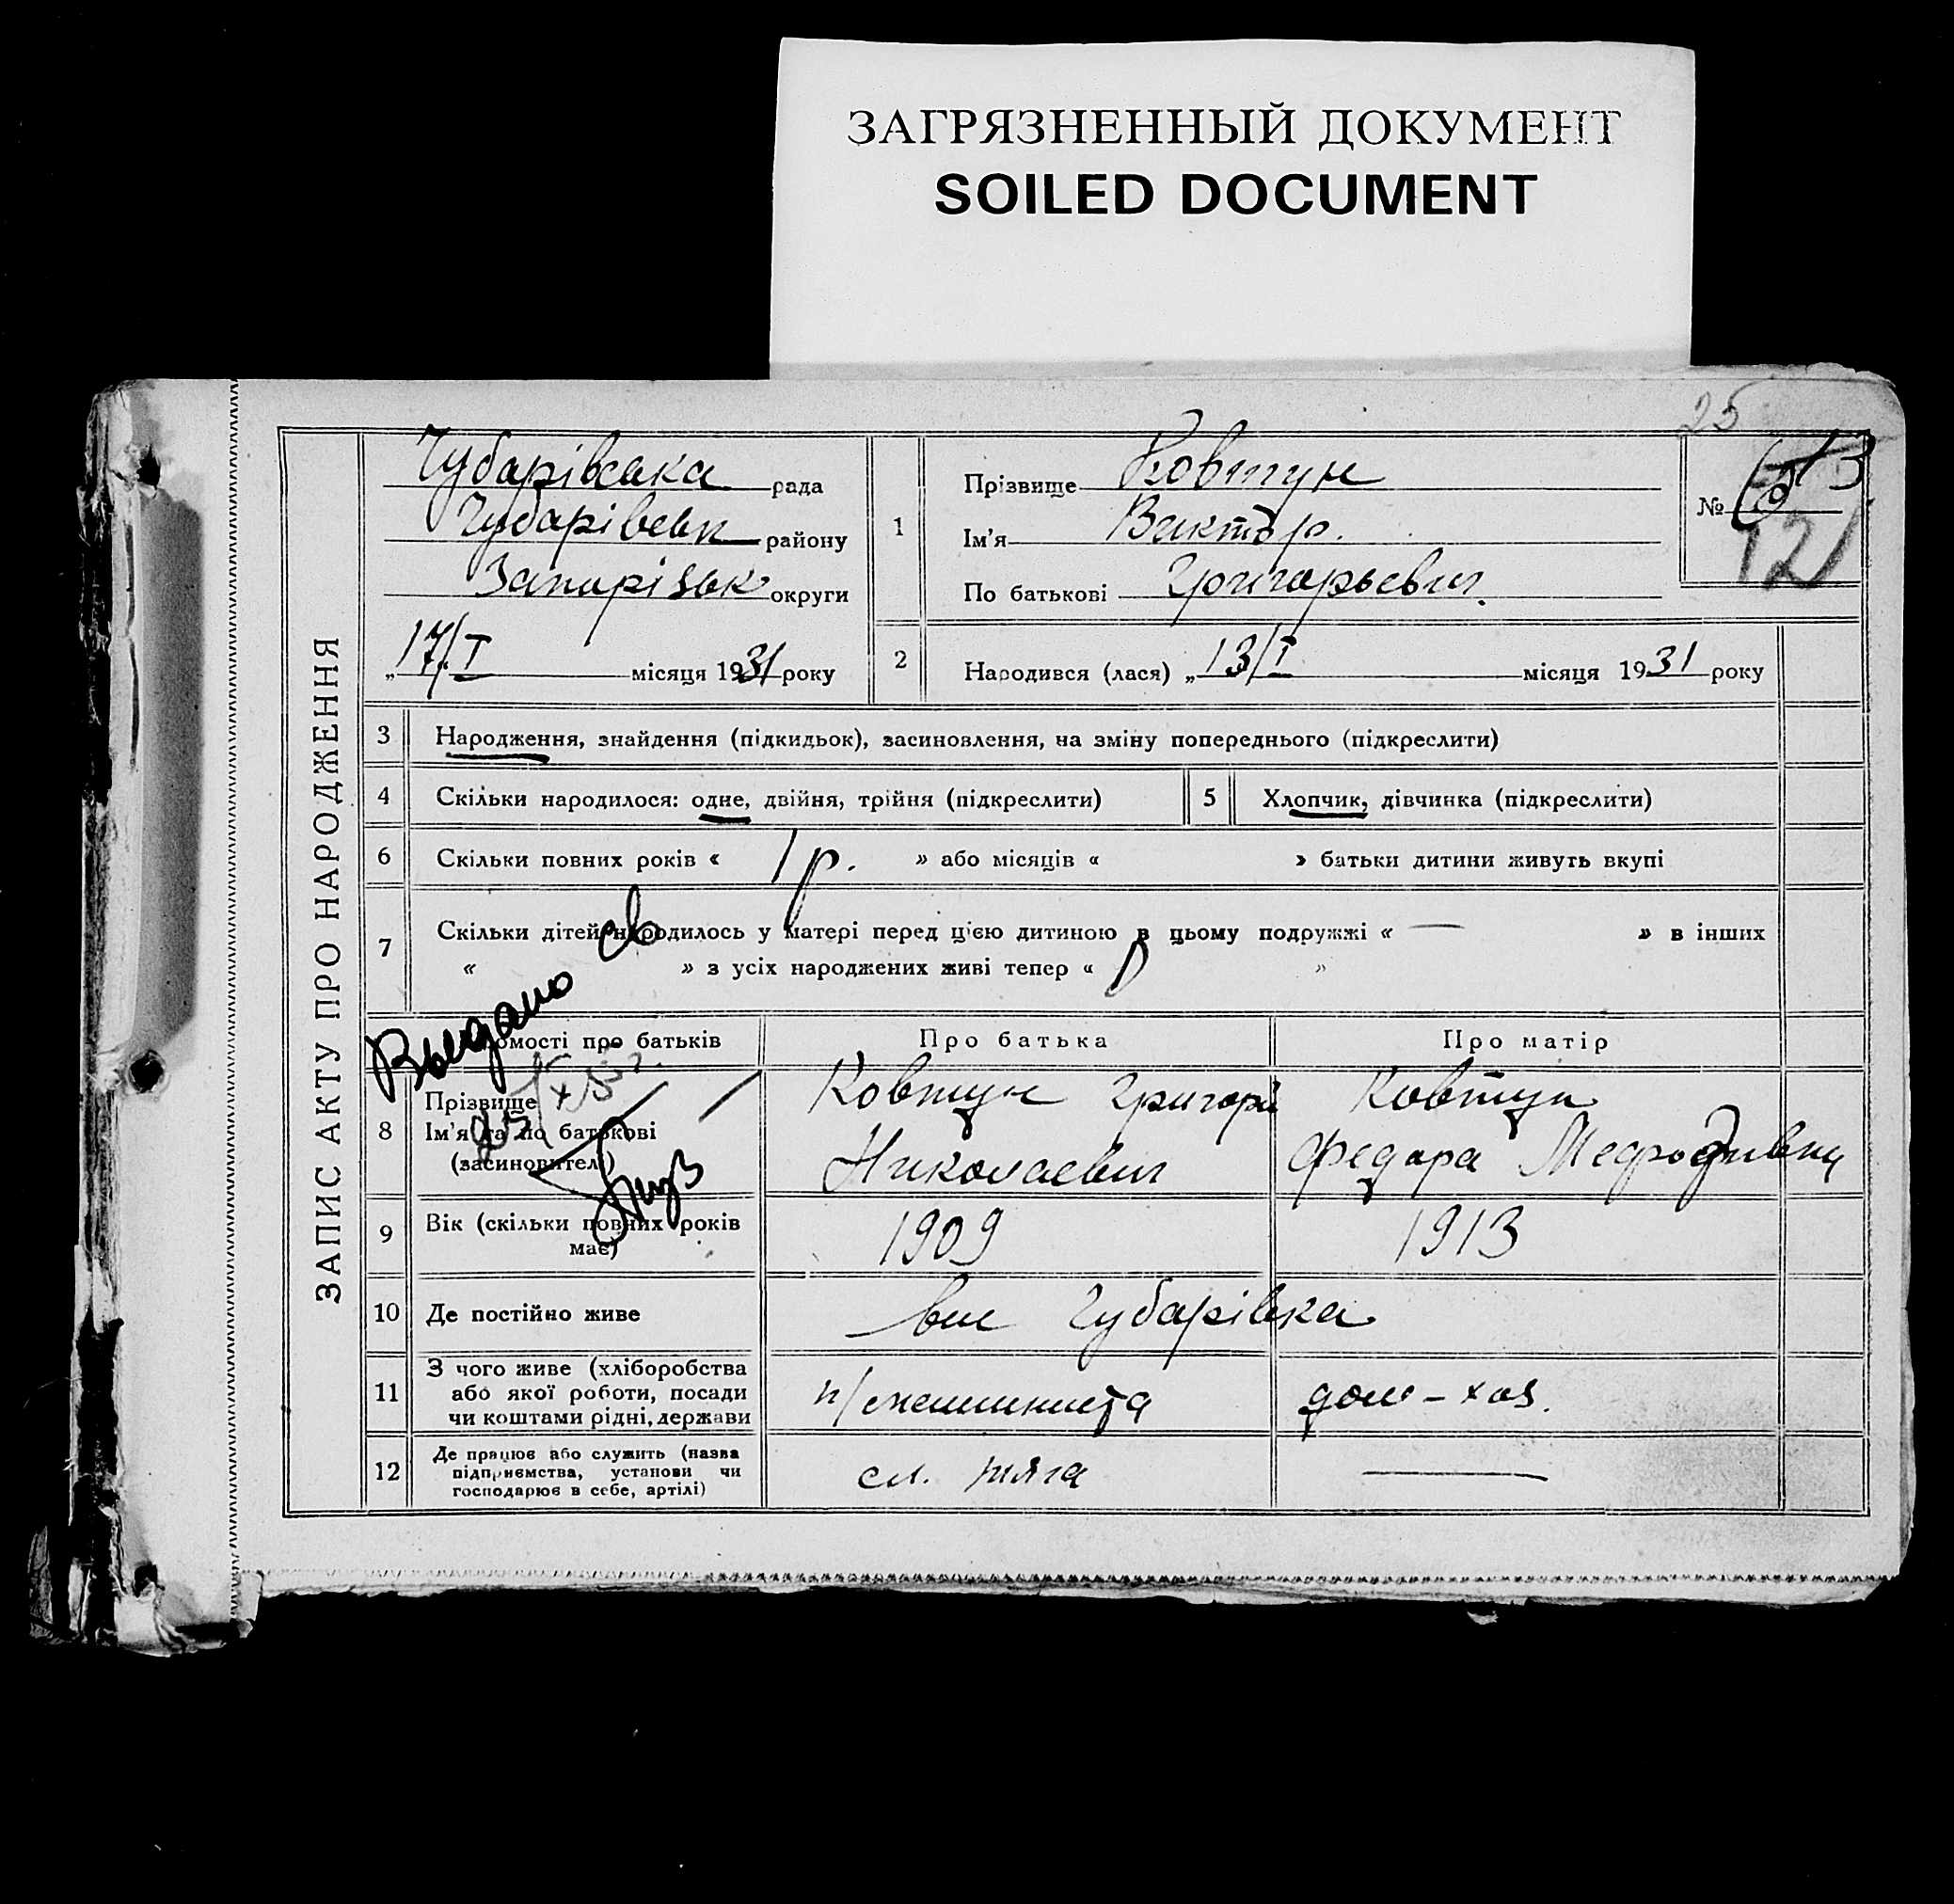 ЗАГРЯЗНЕННЫЙ ДОКУМЕНТ
SOILED DOCUMENT
25
ЗАПИС АКТУ ПРО НАРОДЖЕННЯ
Чубарівська рада
Чубарівськ району
Запорізьк округи
„17/I місяця 1931 року
1
Прізвище Ковтун
Ім'я Виктор.
По батькові Григорьевич.
№
121
2 Народився (лася) „13/I місяця 1931 року
3 Народження, знайдення (підкидьок), засиновлення, на зміну попереднього (підкреслити)
4 Скільки народилося: одне, двійня, трійня (підкреслити)
5 Хлопчик, дівчинка (підкреслити)
6 Скільки повних років « 1 р. » або місяців « » батьки дитини живуть вкупі
7 Скільки дітей народилось у матері перед цією дитиною в цьому подружжі « — » в інших
« » з усіх народжених живі тепер « »
Выдано св
Відомості про батьків
Про батька
Про матір
8 Прізвище
Ім'я та по батькові
(засиновителі)
Ковтун Григорій
Николаевич
Ковтун
Федора
9 Вік (скільки повних років
має)
1909
1913
10 Де постійно живе
Чубарівка
11 З чого живе (хліборобства
або якої роботи, посади
чи коштами рідні, держави
п/машиниста
дом-хоз.
12 Де працює або служить (назва
підприємства, установи чи
господарює в себе, артілі)
сл. тяга
—